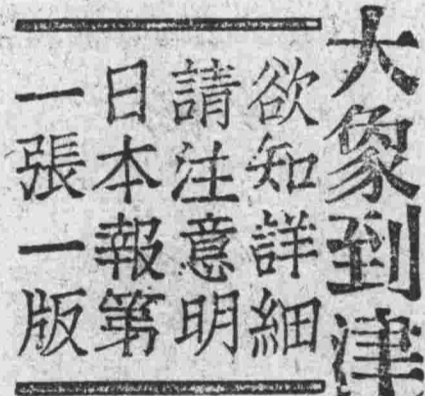 大象到津
欲知詳細
請注意明
日本報第
一張一版